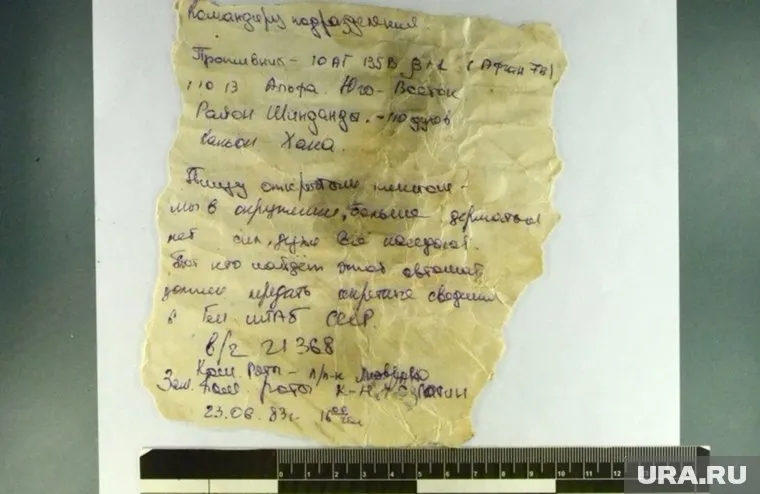 Командеру подразделения
Противник - 10 АГ 135В β+2 (Афган 7в)
11013 Альфа. Юго-Восток
Район Шинданды. -110 духов
Каньон Хана.
Пишу открытым текстом -
мы в окружении, больше держаться
нет сил, духи все наседают.
Тот кто найдет этот автомат
должен передать секретные сведения
в Ген штаб СССР.
в/г 21368
Ком. Роты - п/п-к
Зам. Ком роты к-н
23.06.83г. 16
0 1 2 3 4 5 6 7 8 9 10 11 12
URA.RU